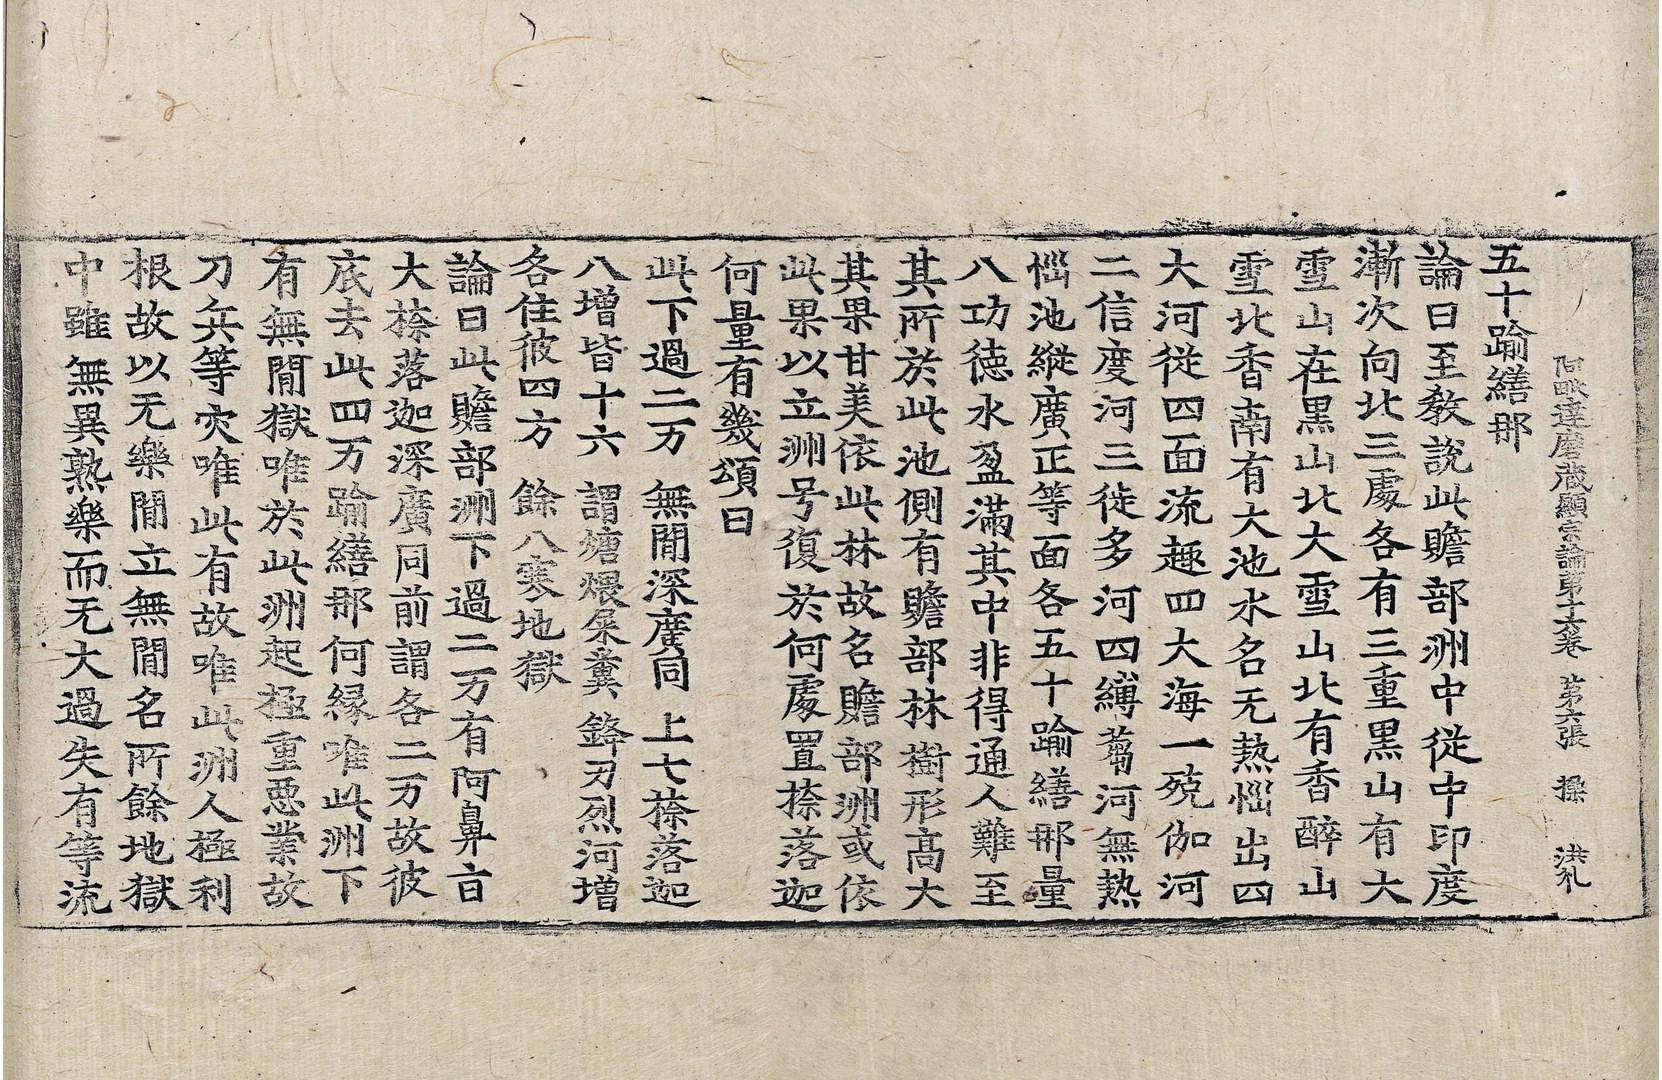 阿毗達磨藏顯宗論第十六卷 第六張 操 洪礼
五十踰繕那
論曰至教說此贍部洲中從中印度
漸次向北三處各有三重黑山有大
雪山在黑山北大雪山北有香醉山
雪北香南有大池水名无熱惱出四
大河從四面流趣四大海一殑伽河
二信度河三徙多河四縛蒭河無熱
惱池縱廣正等面各五十踰繕那量
八功德水盈滿其中非得通人難至
其所於此池側有贍部林樹形高大
其果甘美依此林故名贍部洲或依
此果以立洲号復於何處置捺落迦
何量有幾頌曰
此下過二万 無閒深廣同 上七捺落迦
八增皆十六 謂煻煨屎糞 鋒刃烈河增
各住彼四方 餘八寒地獄
論曰此贍部洲下過二万有阿鼻旨
大捺落迦深廣同前謂各二万故彼
底去此四万踰繕那何緣唯此洲下
有無閒獄唯於此洲起極重惡業故
刀兵等灾唯此有故唯此洲人極利
根故以无樂閒立無閒名所餘地獄
中雖無異熟樂而无大過失有等流